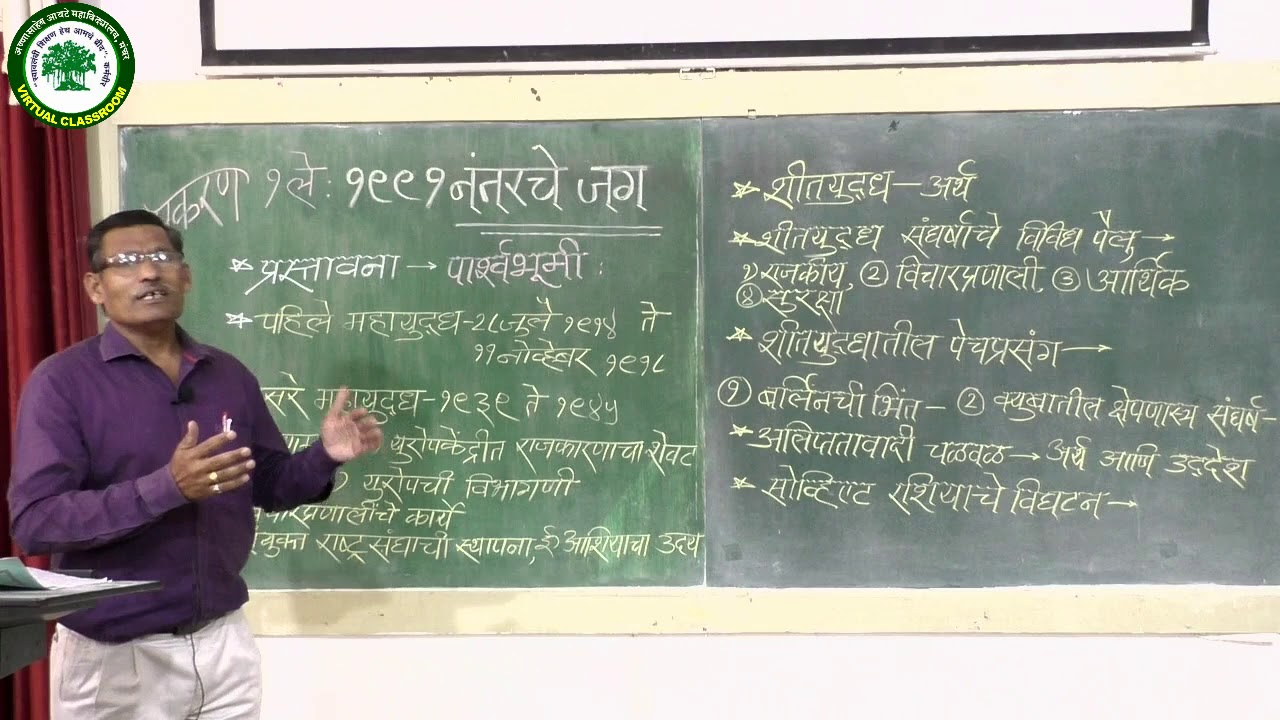 अण्णासाहेब आवटे महाविद्यालय, मंचर
"स्वावलंबी शिक्षण हेच आमचे ब्रीद"- कर्मवीर
VIRTUAL CLASSROOM
प्रकरण १ले: १९९१ नंतरचे जग
* प्रस्तावना → पार्श्वभूमी :
* पहिले महायुद्ध-२८ जुलै १९१४ ते
११ नोव्हेंबर १९१८
सरे महायुद्ध-१९३९ ते १९४५
युरोपकेंद्रीत राजकारणाचा शेवट
युरोपची विभागणी
चारप्रणालींचे कार्य
संयुक्त राष्ट्रसंघाची स्थापना, ई) आशियाचा उदय
* शीतयुद्ध – अर्थ
* शीतयुद्ध संघर्षाचे विविध पैलू →
१) राजकीय, ② विचारप्रणाली. ③ आर्थिक
④ सुरक्षा
* शीतयुद्धातील पेचप्रसंग →
① बर्लिनची भिंत – ② क्युबातील क्षेपणास्त्र संघर्ष-
* अलिप्ततावादी चळवळ → अर्थ आणि उद्देश
* सोव्हिएट रशियाचे विघटन →